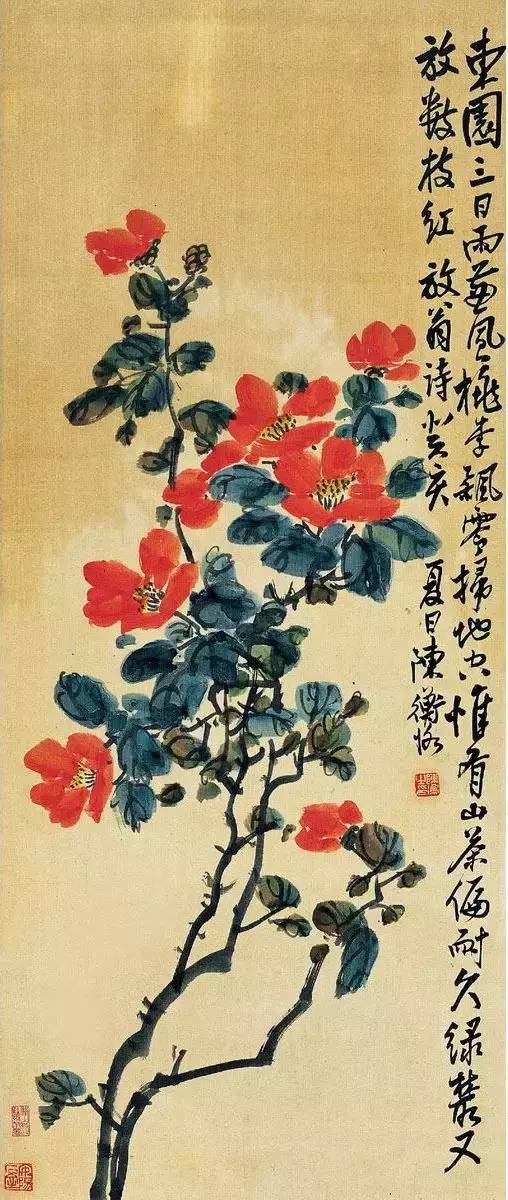 東園三日雨兼風桃李飄零掃地空惟有山茶偏耐久緑叢又
放數枝紅 放翁诗 癸亥 夏日陳衡恪